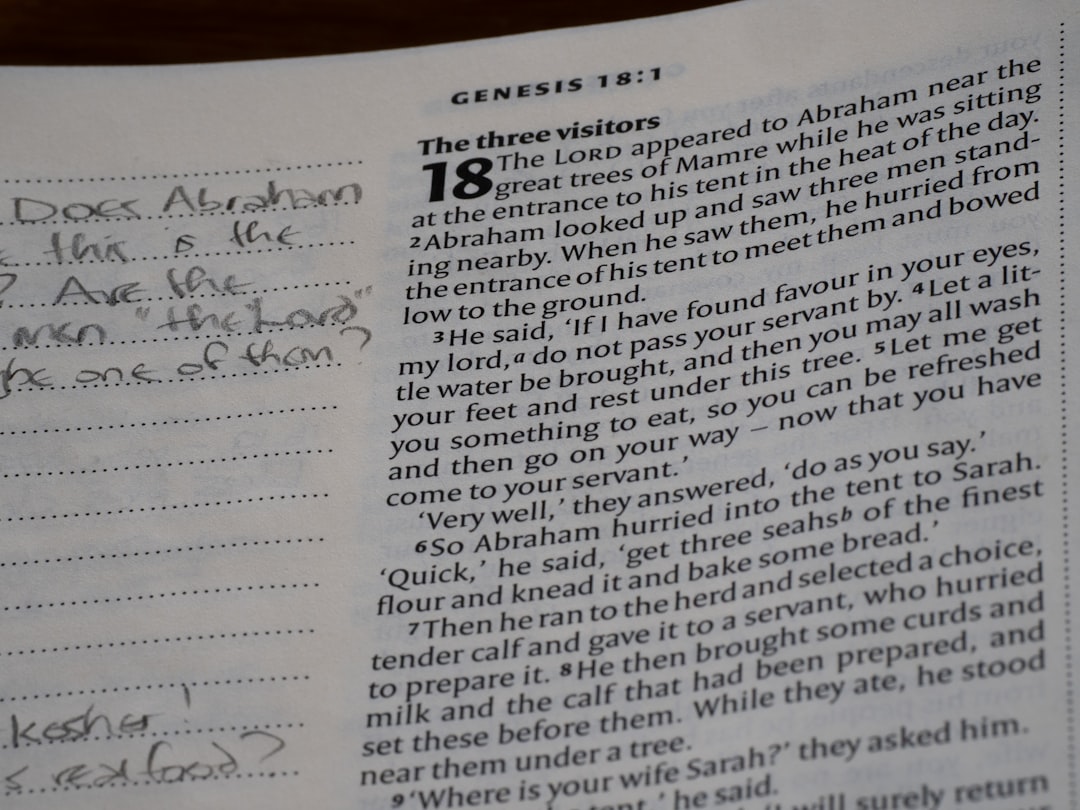 Does Abraham
this is the
? Are the
men "the Lord"
be one of them?
kosher!
real food?
GENESIS 18:1
The three visitors
18 The LORD appeared to Abraham near the
great trees of Mamre while he was sitting
at the entrance to his tent in the heat of the day.
2 Abraham looked up and saw three men stand-
ing nearby. When he saw them, he hurried from
the entrance of his tent to meet them and bowed
low to the ground.
3 He said, ‘If I have found favour in your eyes,
my lord,a do not pass your servant by. 4 Let a lit-
tle water be brought, and then you may all wash
your feet and rest under this tree. 5 Let me get
you something to eat, so you can be refreshed
and then go on your way – now that you have
come to your servant.’
‘Very well,’ they answered, ‘do as you say.’
6 So Abraham hurried into the tent to Sarah.
‘Quick,’ he said, ‘get three seahsb of the finest
flour and knead it and bake some bread.’
7 Then he ran to the herd and selected a choice,
tender calf and gave it to a servant, who hurried
to prepare it. 8 He then brought some curds and
milk and the calf that had been prepared, and
set these before them. While they ate, he stood
near them under a tree.
9 ‘Where is your wife Sarah?’ they asked him.
tent,’ he said.
will surely return